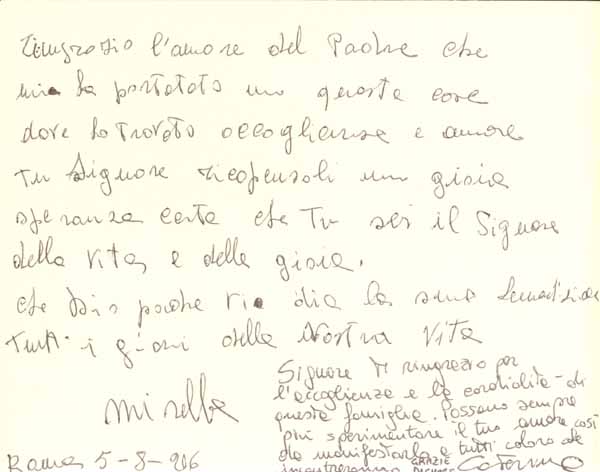 Ringrazio l'amore del Padre che
mi ha portato in questa casa
dove ho trovato accoglienza e amore
Tu Signore ricopensali in gioia
speranza certa che Tu sei il Signore
della vita e della gioia.
che Dio padre vi dia la sua benedizione
Tutti i giorni della Vostra Vita
Mirella
Roma 5-8-
Signore Ti ringrazio per
l'accoglienza e la cordialità di
questa famiglia. Possano sempre
più sperimentare il tuo amore così
da manifestarlo a tutti coloro che
incontreranno GRAZIE